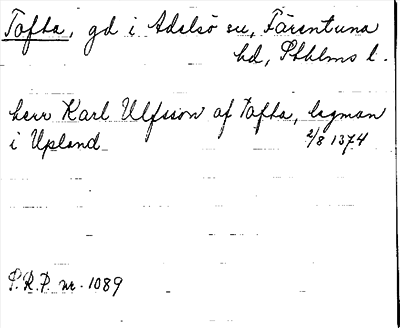 Tofta, gd i Adelsö sn, Färentuna
hd, Sthlms l.
herr Karl Ulfsson af Tofta, lagman
i Upland 2/8 1374
S.R.P. nr. 1089